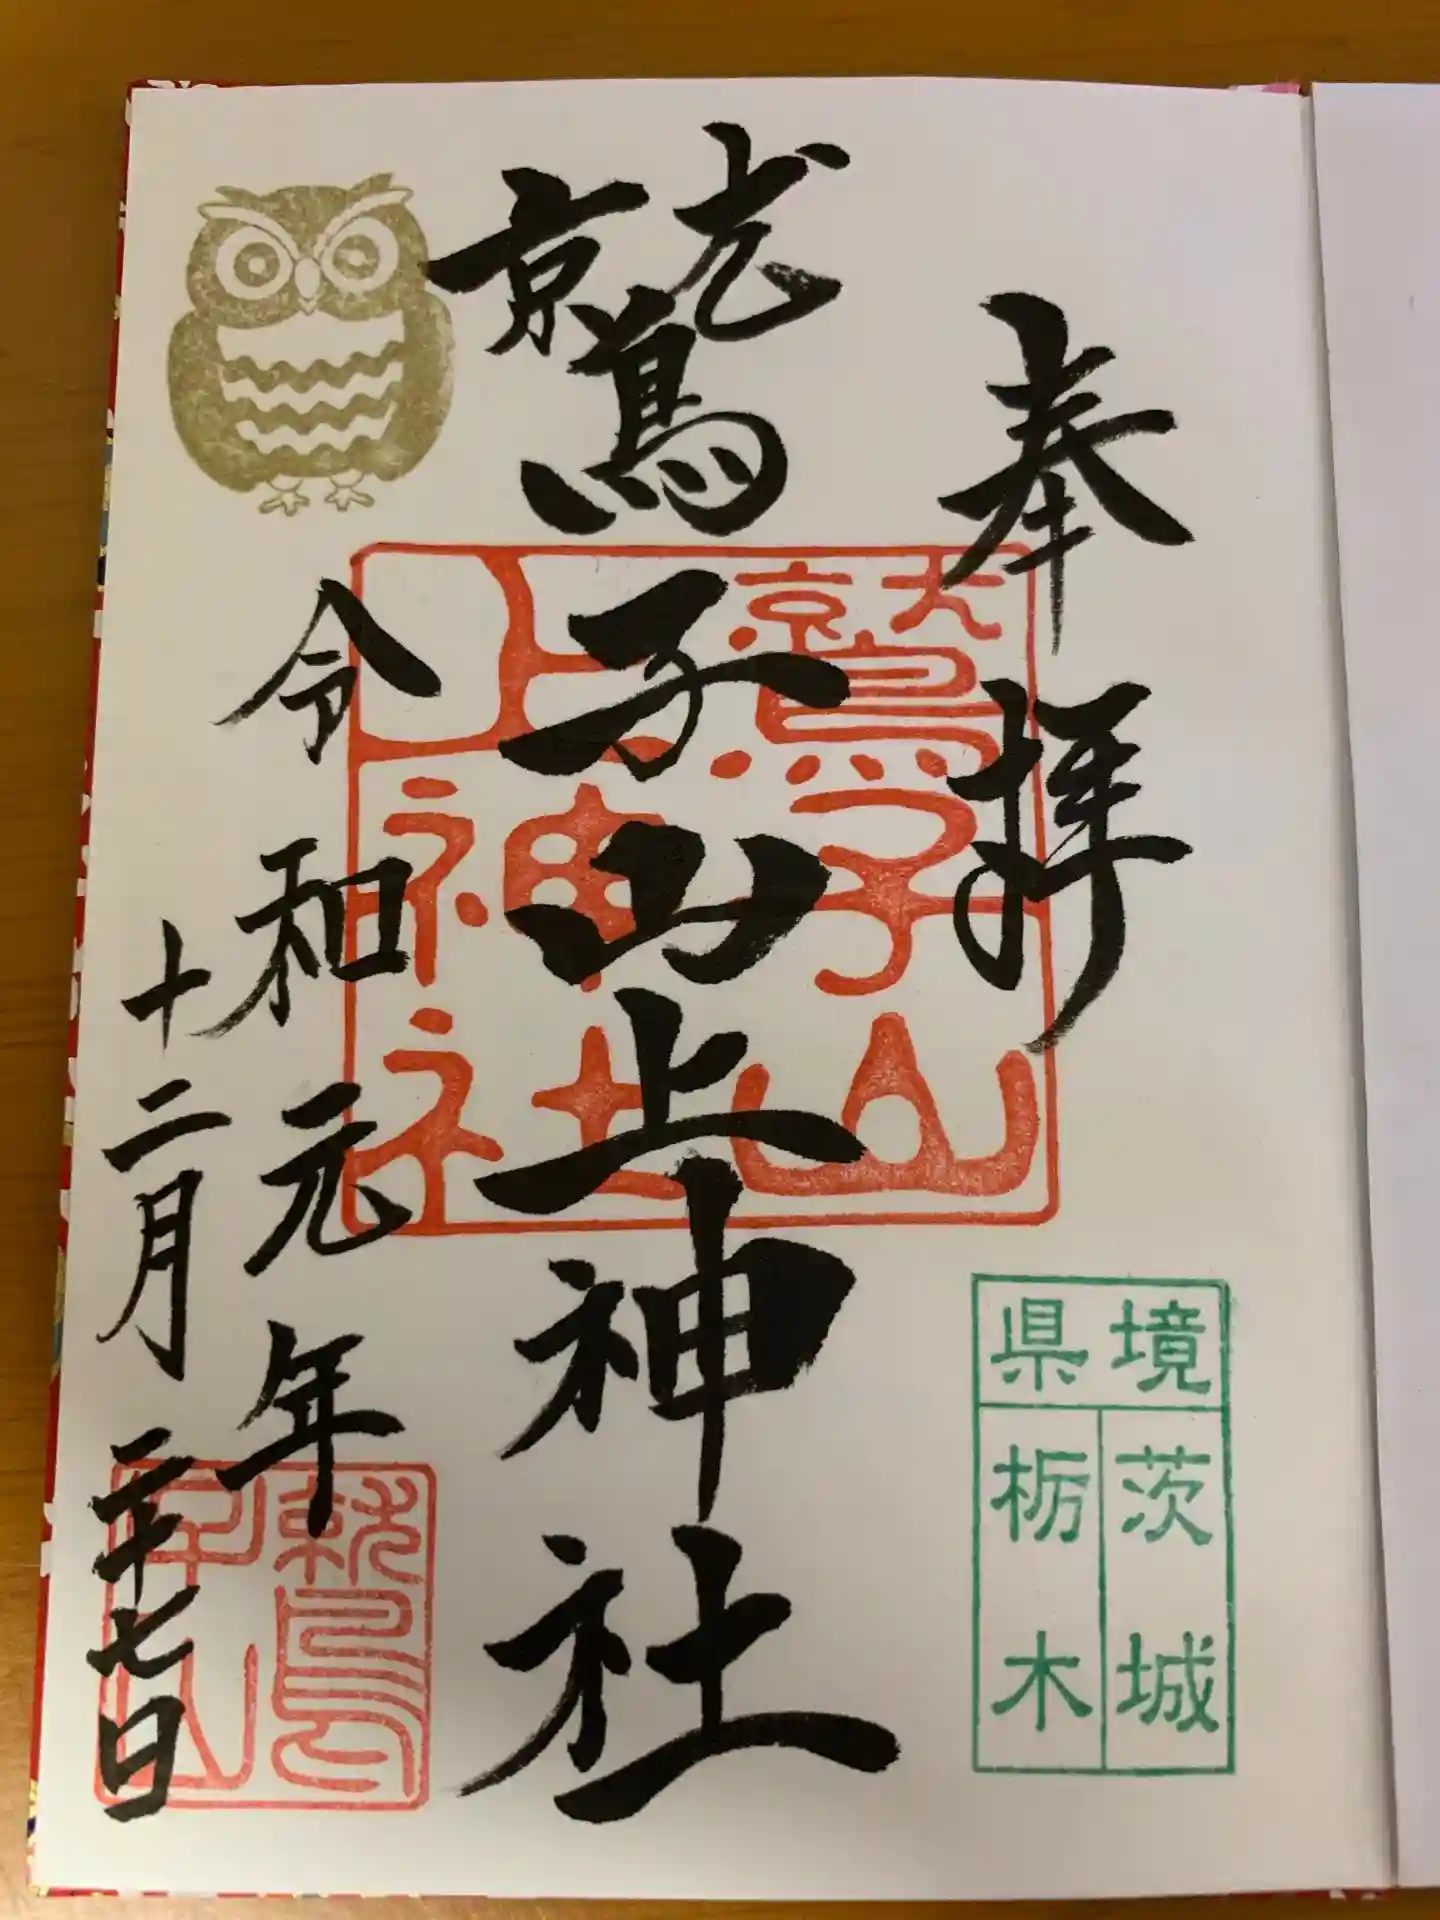 奉拝
鷲子山上神社
令和元年
十二月二十七日
鷲子山
上神社
県境
茨城
栃木
鷲子山